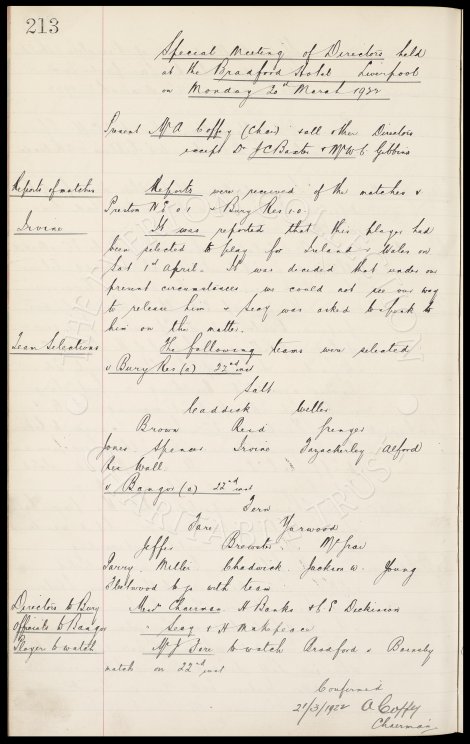 213
Special Meeting of Directors held
at the Bradford Hotel Liverpool
on Monday 20th March 1922
Present Mr A. Coffey (Chair) & all other Directors
except Dr J C Baxter & Mr W. C. Gibbins
Reports of matches
Reports were received of the matches v
Preston N E 0.1 & Bury Res 1.0.
Irvine
It was reported that this player had
been selected to play for Ireland v Wales on
Sat 1st April. It was decided that under our
present circumstances we could not see our way
to release him & Secy was asked to speak to
him on the matter.
Team Selections
The following teams were selected
v Bury Res (a) 22nd inst
Salt
Caddick Weller
Brown Reid Grenyer
Jones Spencer Irvine Fazackerley Alford
Res Wall
v Bangor (a) 22nd inst
Fern
Fare Yarwood
Jeffs Brewster Mc Grae
Parry Miller Chadwick Jackson W. Young
Fleetwood to go with team
Directors to Bury
Messrs Chairman H Banks & C E Dickinson
Officials to Bangor
Secy & H Makepeace
Player to watch
Mr J Fare to watch Bradford v Barnsley
match on 22nd inst
Confirmed
21/3/1922 A Coffey
Chairman
THE EVERTON COLLECTION
CHARITABLE TRUST